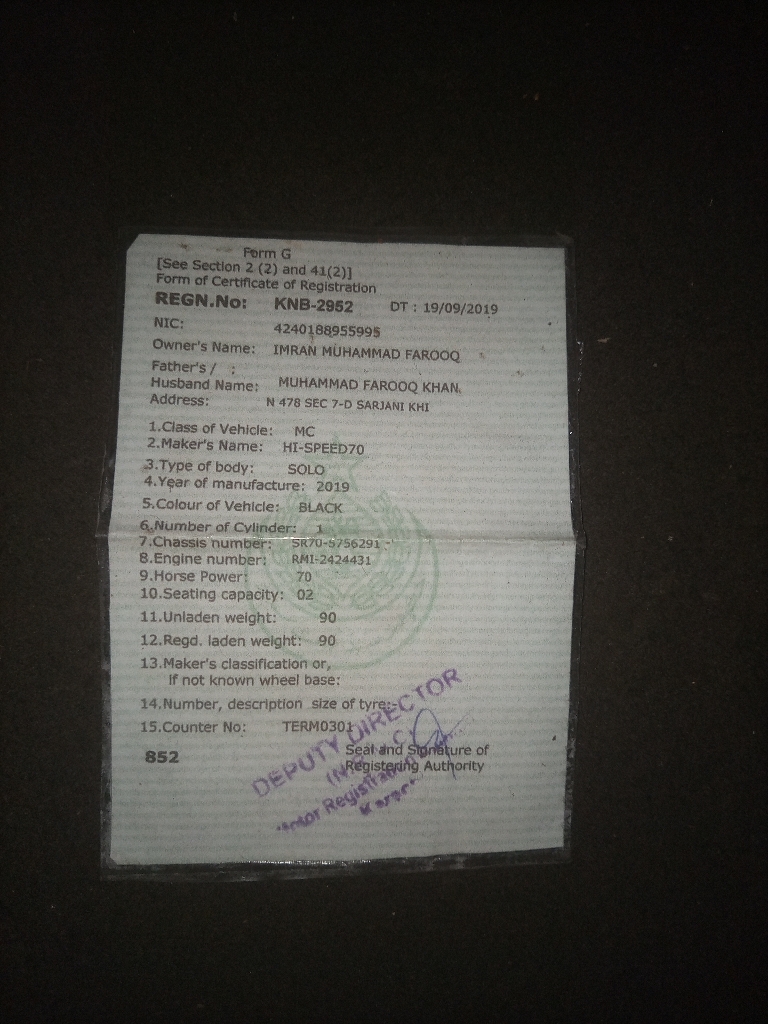 Form G
[See Section 2 (2) and 41(2)]
Form of Certificate of Registration
REGN.No: KNB-2952 DT : 19/09/2019
NIC: 4240188955995
Owner's Name: IMRAN MUHAMMAD FAROOQ
Father's / :
Husband Name: MUHAMMAD FAROOQ KHAN.
Address: N 478 SEC 7-D SARJANI KHI
1.Class of Vehicle: MC
2.Maker's Name: HI-SPEED70
3.Type of body: SOLO
4.Year of manufacture: 2019
5.Colour of Vehicle: BLACK
6.Number of Cylinder: 1
7.Chassis number: SR70-5756291
8.Engine number: RMI-2424431
9.Horse Power: 70
10.Seating capacity: 02
11.Unladen weight: 90
12.Regd. laden weight: 90
13.Maker's classification or,
if not known wheel base:
14.Number, description size of tyre:-
15.Counter No: TERM0301
852
Seal and Signature of
Registering Authority
DEPUTY DIRECTOR